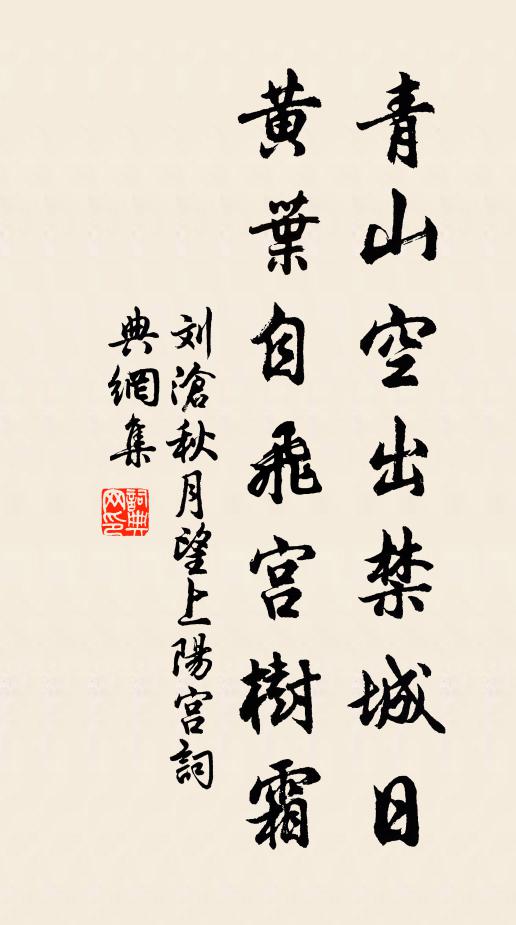 青山空出禁城日
黃葉自飛宮樹霜
刘滄秋月望上陽宮詞
典網集
詞典网印